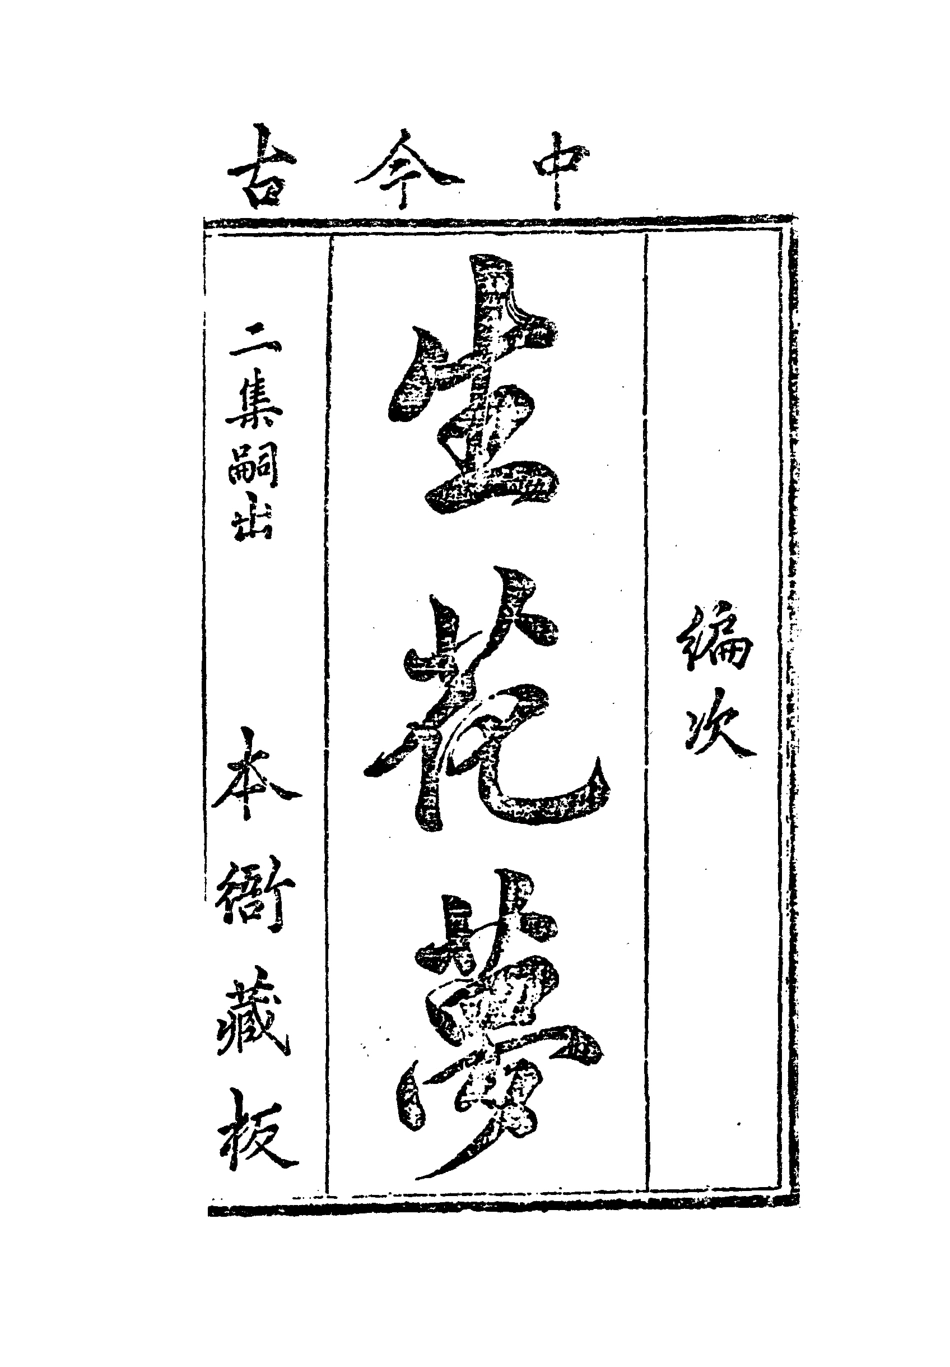 中今古
編次
生花夢
二集嗣出
本衙藏板